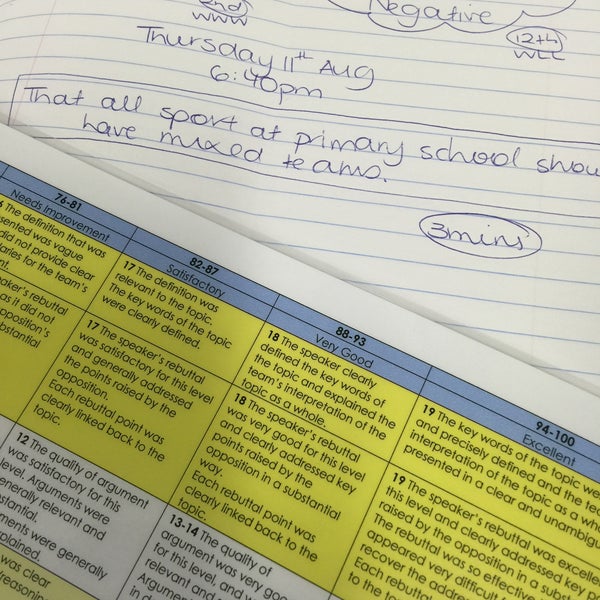 2nd
WWW
Negative
12+4
WLL
Thursday 11th Aug
6:40pm
That all sport at primary school
have mixed teams.
3mins
76-81
Needs Improvement
The definition that was
vague
did not provide clear
for the team's
rebuttal
as it did not
82-87
Satisfactory
17 The definition was
relevant to the topic.
The key words of the topic
were clearly defined.
17 The speaker's rebuttal
was satisfactory for this level
and generally addressed
the points raised by the
opposition.
Each rebuttal point was
clearly linked back to the
topic.
12 The quality of argument
was satisfactory for this
level. Arguments were
generally relevant and
were generally
was clear
88-93
Very Good
18 The speaker clearly
defined the key words of
the topic and explained the
team's interpretation of the
topic as a whole.
18 The speaker's rebuttal
was very good for this level
and clearly addressed key
points raised by the
opposition in a substantial
way.
Each rebuttal point was
clearly linked back to the
topic.
13-14 The quality of
argument was very
for this level, and
relevant and
94-100
Excellent
19 The key words of the topic
and precisely defined and the
interpretation of the topic as a
presented in a clear and
19 The speaker's rebuttal was
this level and clearly addressed key
raised by the opposition in a
The rebuttal was so effective
appeared very difficult
recover the
Each
to the